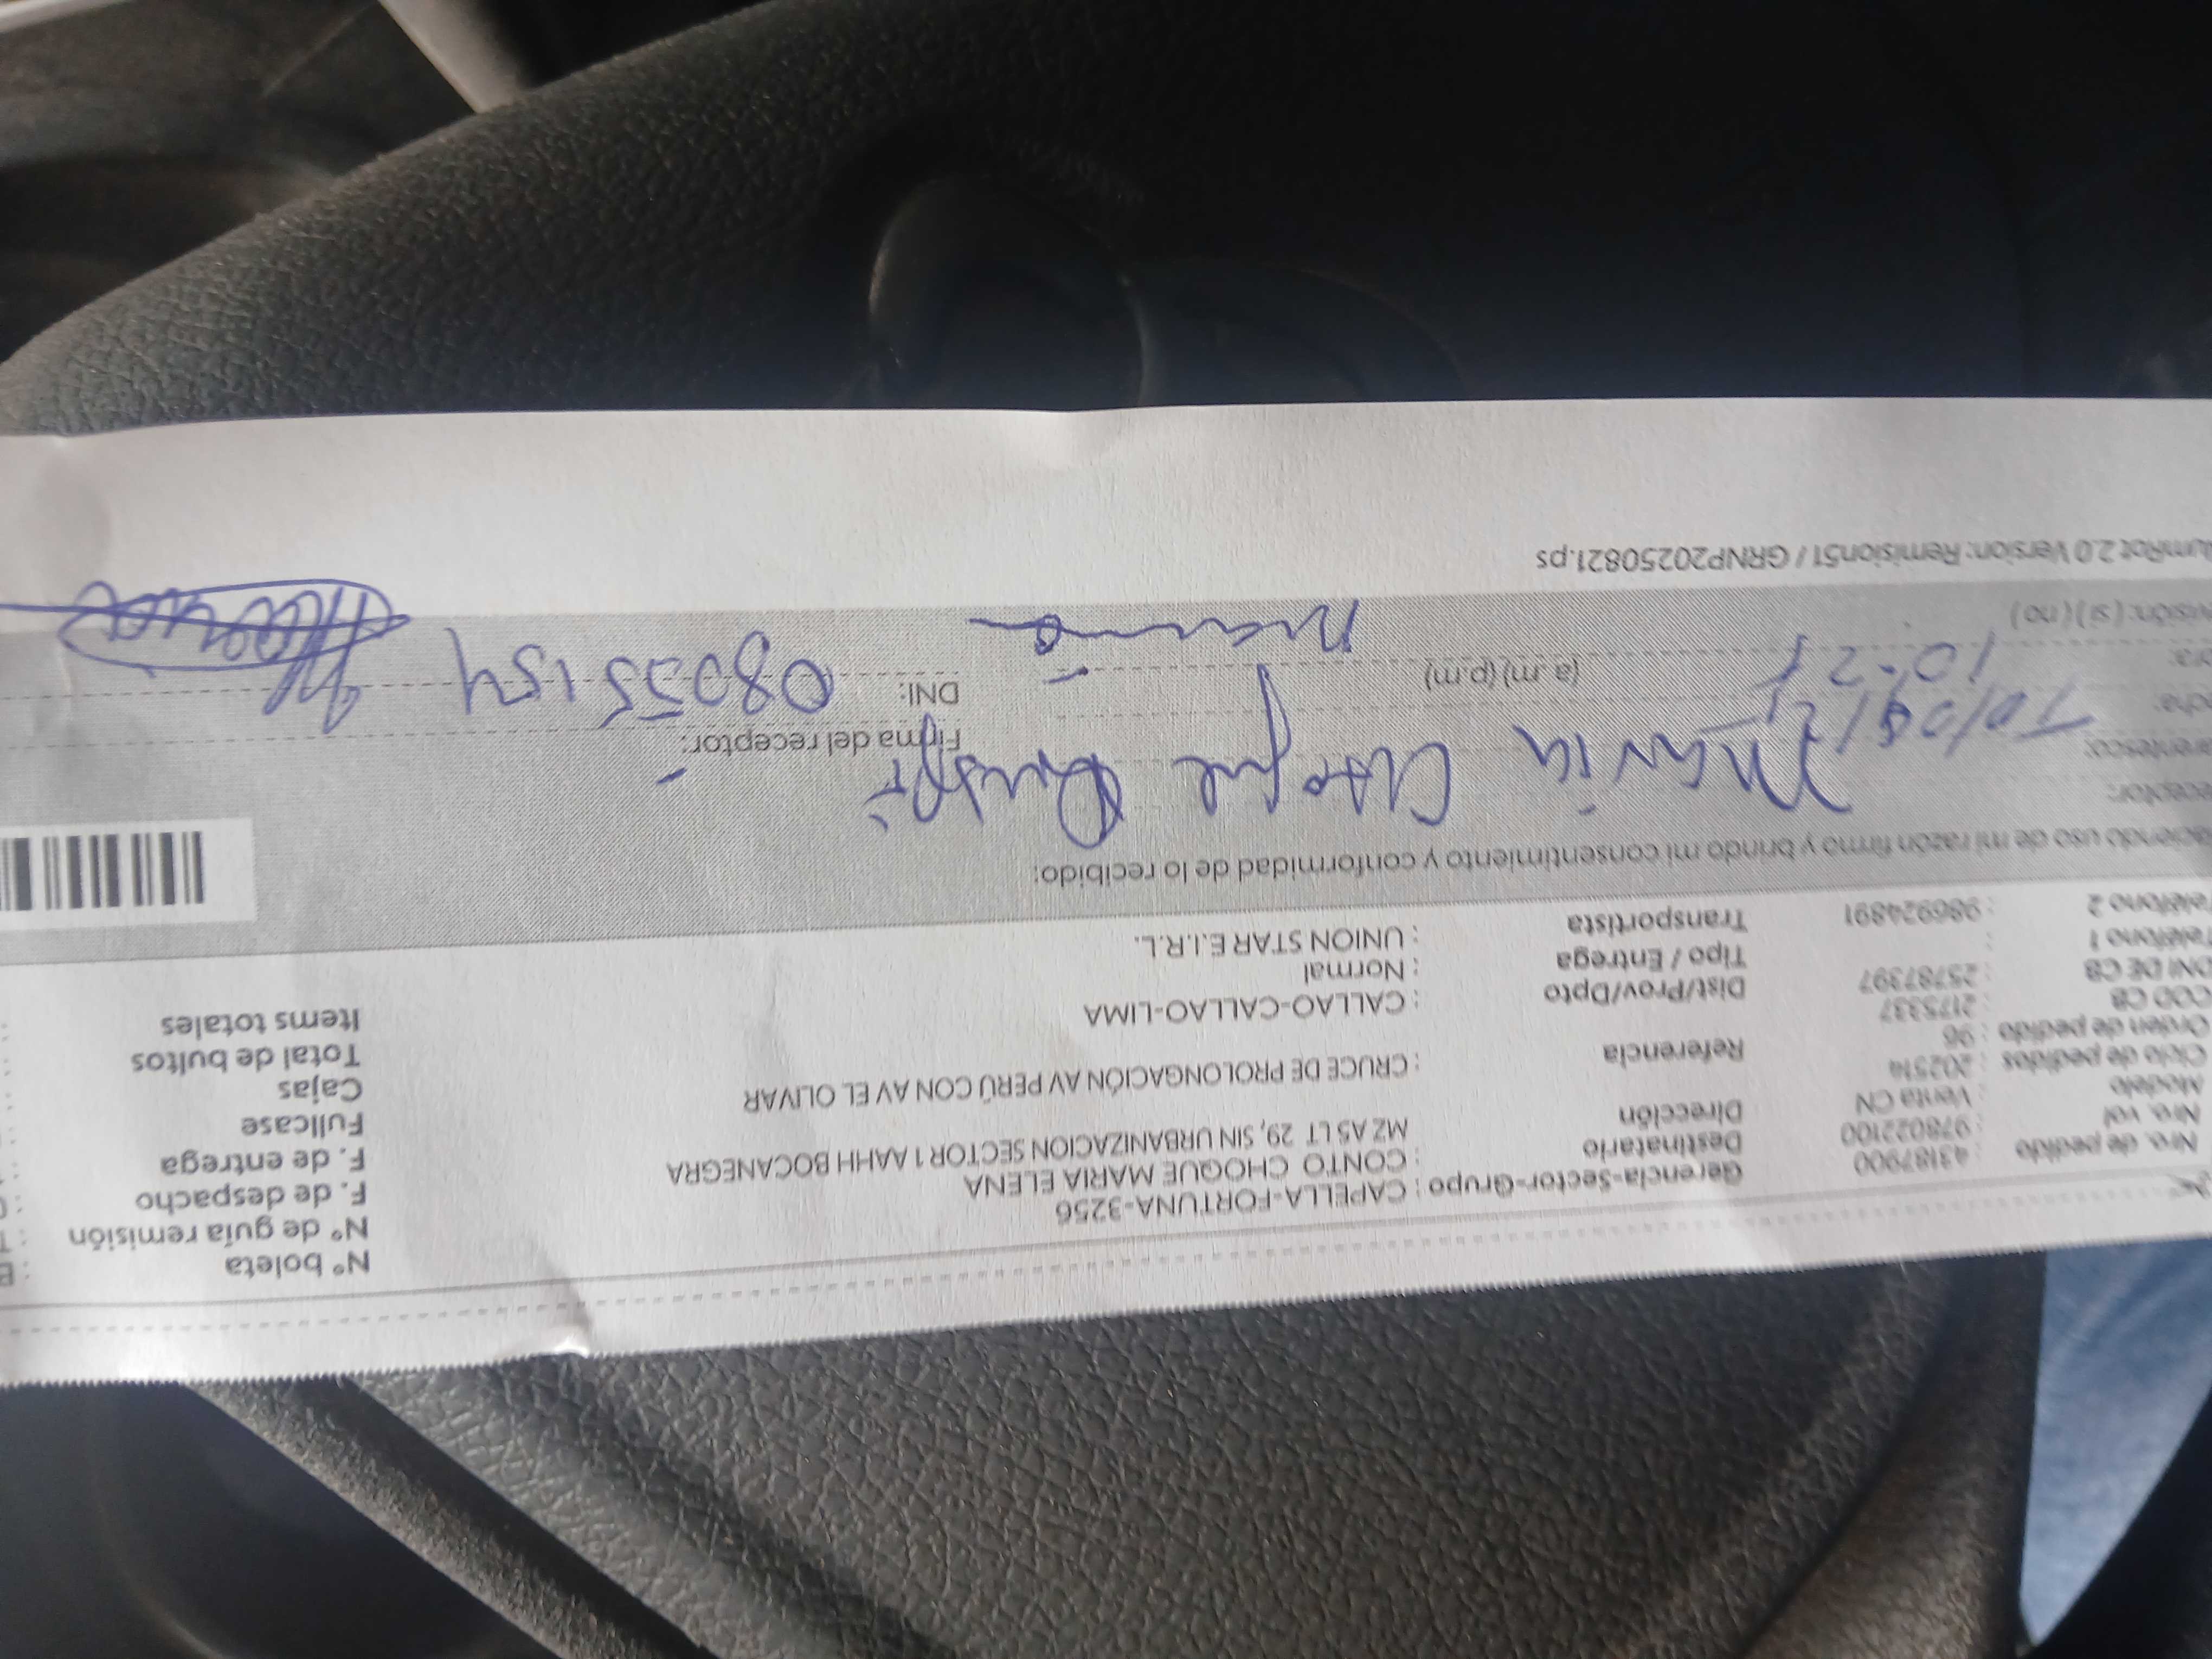 Nro. de pedido : 43187900 Gerencia-Sector-Grupo : CAPELLA-FORTUNA-3256 N° boleta :
Nro. vol : 978022100 Destinatario : CONTO CHOQUE MARIA ELENA N° de guía remisión :
Modelo : Venta CN Dirección MZ A5 LT 29, SIN URBANIZACION SECTOR 1 AAHH BOCANEGRA F. de despacho :
Ciclo de pedidos : 202514 F. de entrega :
Orden de pedido : 96 Referencia : CRUCE DE PROLONGACIÓN AV PERÚ CON AV EL OLIVAR Fullcase :
COD CB : 2175337 Cajas :
DNI DE CB : 25787397 Dist/Prov/Dpto : CALLAO-CALLAO-LIMA Total de bultos :
Teléfono 1 : Tipo / Entrega : Normal Items totales :
Teléfono 2 : 986924891 Transportista : UNION STAR E.I.R.L.
ciendo uso de mi razón firmo y brindo mi consentimiento y conformidad de lo recibido:
eceptor: Maria Choque Quispe
rentesco: Firma del receptor:
cha:
ora: 10:21 (a.m) (p.m) DNI: 08035154
visión: (si) (no) mamá
umRot 2.0 Version: Remision51 / GRNP20250821.ps